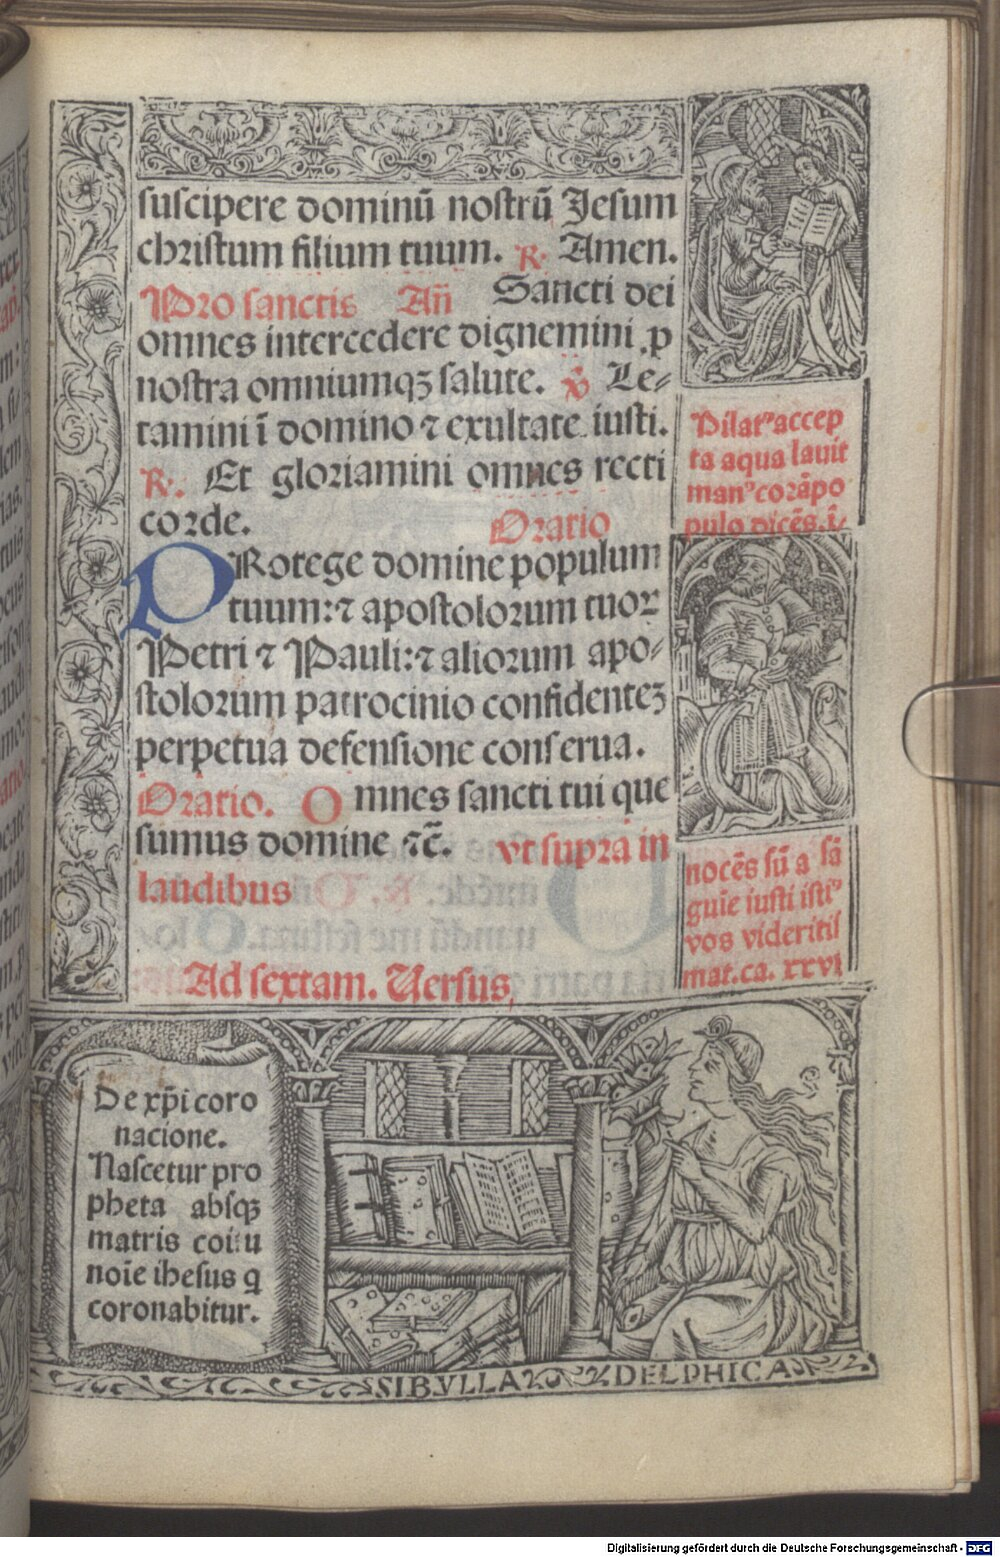 suscipere dominū nostrū Jesum
christum filium tuum. R. Amen.
Pro sanctis Añ Sancti dei
omnes intercedere dignemini .p
nostra omniumqꝫ salute. v̄ Le⸗
tamini ī domino ⁊ exultate iusti.
R. Et gloriamini omnes recti
corde. Oratio
PRotege domine populum
tuum:⁊ apostolorum tuoꝝ
Petri ⁊ Pauli:⁊ aliorum apo⸗
stolorum patrocinio confidenteꝫ
perpetua defensione conserua.
Oratio. Omnes sancti tui que
sumus domine ⁊c̄. vt supra in
laudibus
Ad sextam. Versus.
Pilatꝰ accep
ta aqua lauit
manꝰ corā po
pulo dicēs. ī⸗
nocēs sū a sā
guie iusti istiꝰ
vos videritis
mat.ca. xxvi
De xp̄i coro
nacione.
Nascetur pro
pheta absqꝫ
matris coitu
noīe ihesus q
coronabitur.
SIBVLLA DELPHICA
Digitalisierung gefördert durch die Deutsche Forschungsgemeinschaft - DFG